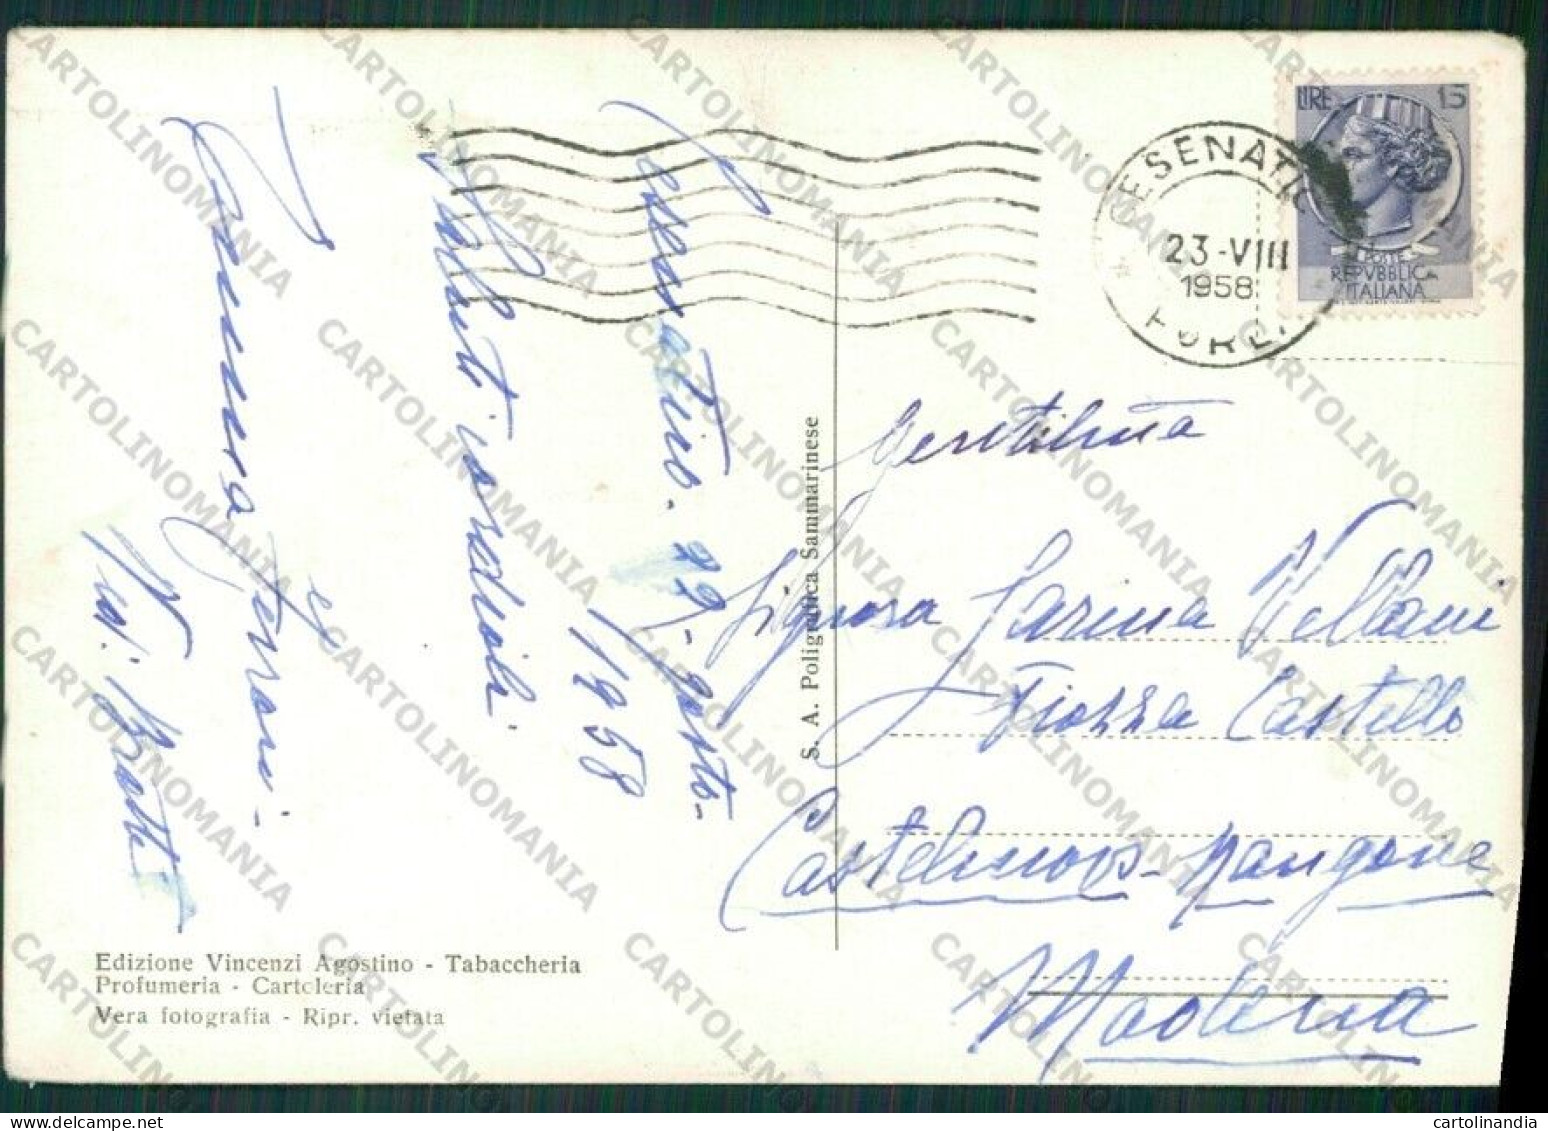 LIRE 15
POSTE
REPVBBLICA
ITALIANA
CESENATICO
23-VIII
1958
FORLI
Cesenatico. 22-Agosto-
1958
Saluti cordiali
Gentilma
Signora Carina Vellani
Piazza Castello
Castelnuovo-Rangone
Modena
S. A. Poligrafica Sammarinese
Edizione Vincenzi Agostino - Tabaccheria
Profumeria - Cartoleria
Vera fotografia - Ripr. vietata
CARTOLINOMANIA
cartolinandia